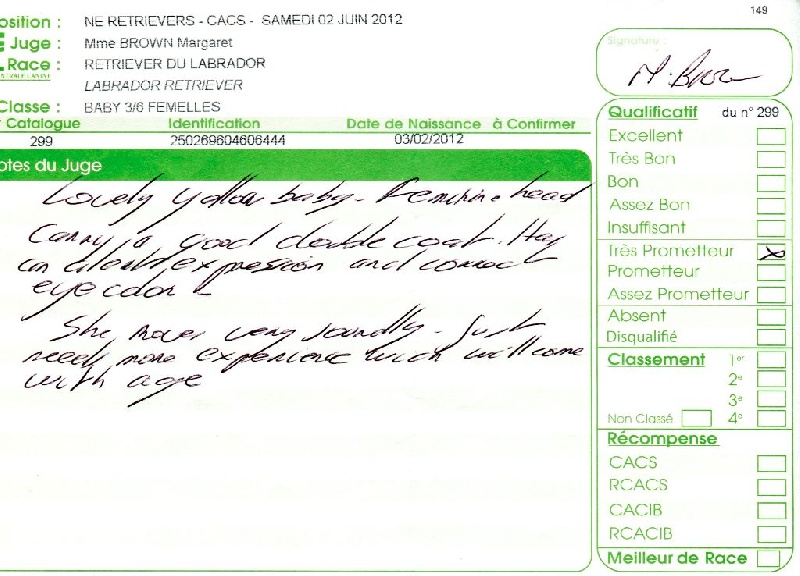 149
osition : NE RETRIEVERS - CACS - SAMEDI 02 JUIN 2012
E Juge : Mme BROWN Margaret
Race : RETRIEVER DU LABRADOR
LABRADOR RETRIEVER
Classe : BABY 3/6 FEMELLES
Catalogue Identification Date de Naissance à Confirmer
299 250269604606444 03/02/2012
otes du Juge
Lovely yellow baby - Feminine head
Carrys good double coat. Has
an alert expression and correct
eye color
She moves very soundly - Just
needs more experience wich will come
with age
Signature :
M. Brown
Qualificatif du n° 299
Excellent
Très Bon
Bon
Assez Bon
Insuffisant
Très Prometteur X
Prometteur
Assez Prometteur
Absent
Disqualifié
Classement 1er
2e
3e
Non Classé 4e
Récompense
CACS
RCACS
CACIB
RCACIB
Meilleur de Race